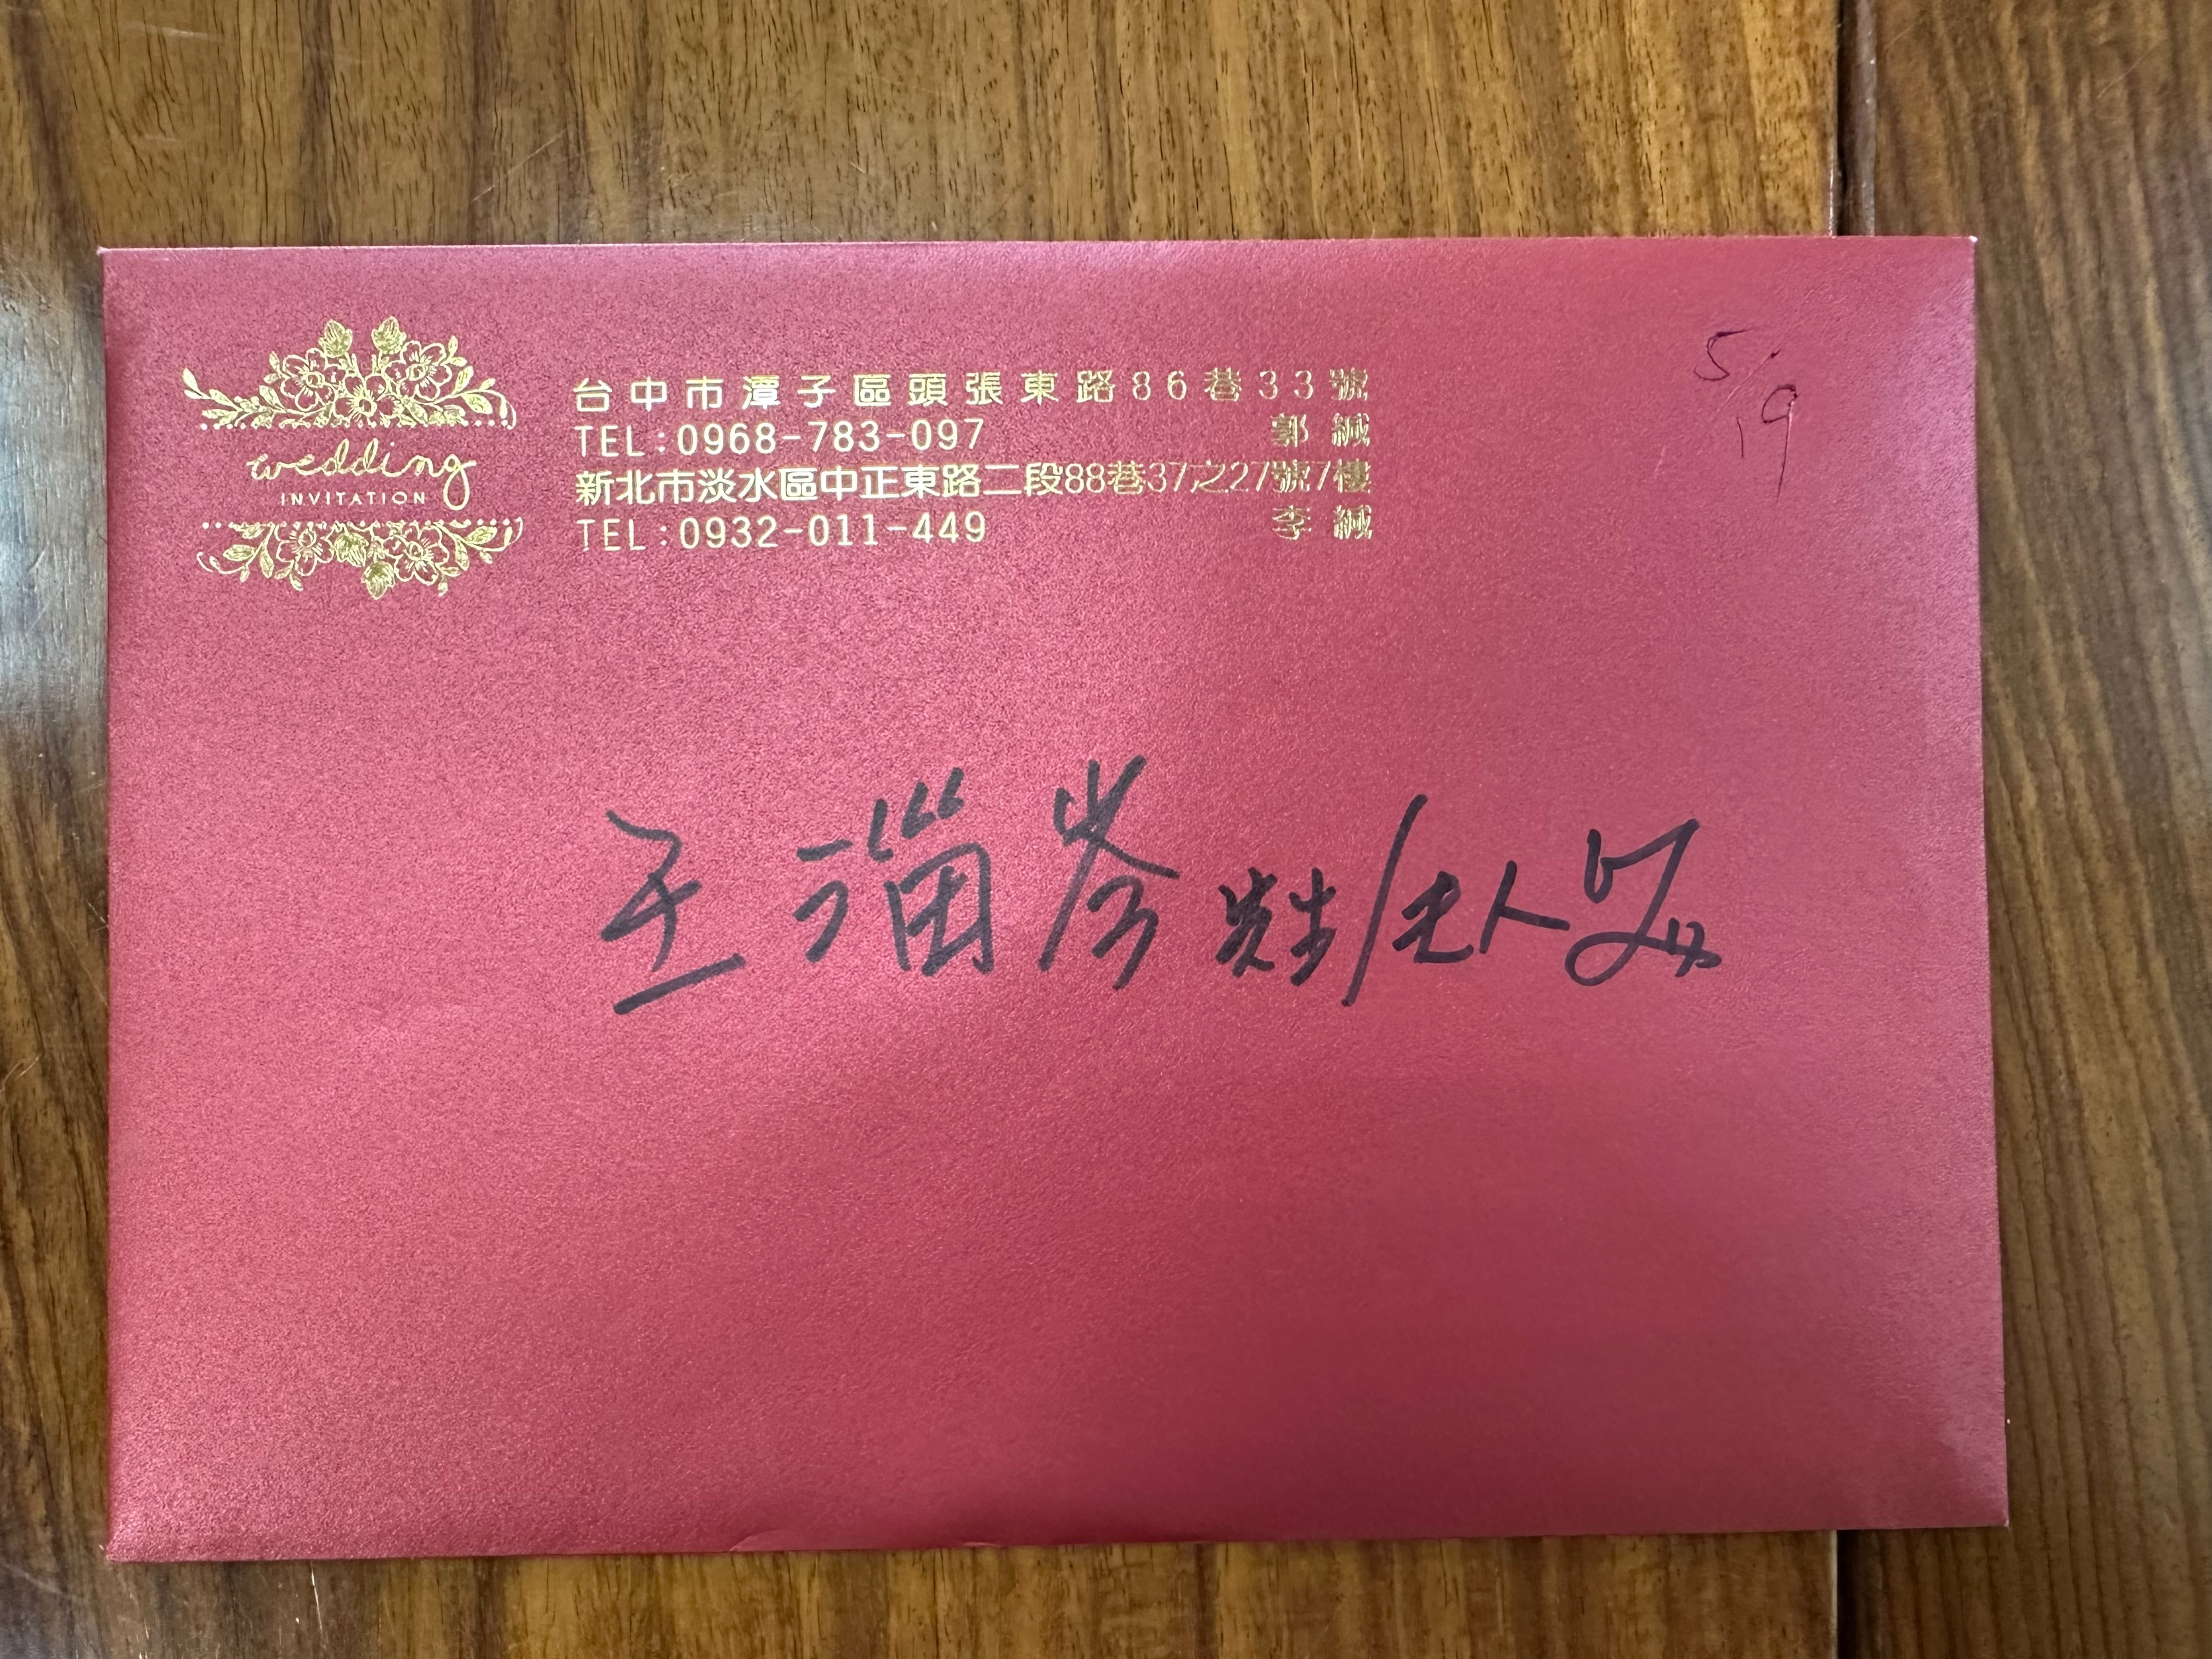 wedding
INVITATION
台中市潭子區頭張東路86巷33號
TEL:0968-783-097 郭緘
新北市淡水區中正東路二段88巷37之27號7樓
TEL:0932-011-449 李緘
5/19
王瑙岑 / 夫人